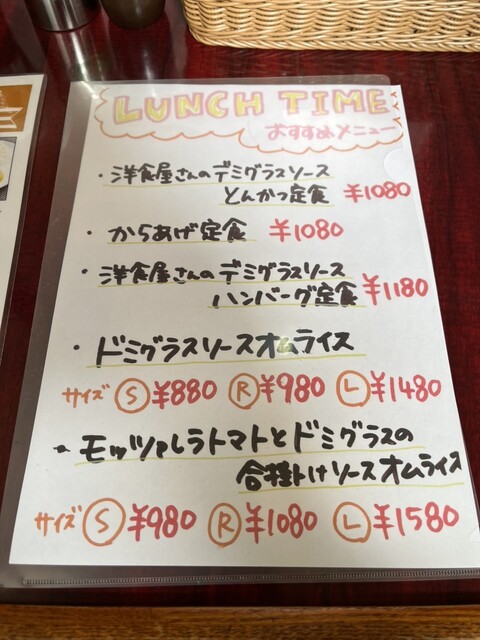 LUNCH TIME
おすすめメニュー
・洋食屋さんのデミグラスソース
とんかつ定食 ¥1080
・からあげ定食 ¥1080
・洋食屋さんのデミグラスソース
ハンバーグ定食 ¥1180
・ドミグラスソースオムライス
サイズ Ⓢ¥880 Ⓡ¥980 Ⓛ¥1480
・モッツァレラトマトとドミグラスの
合掛けソースオムライス
サイズ Ⓢ¥980 Ⓡ¥1080 Ⓛ¥1580